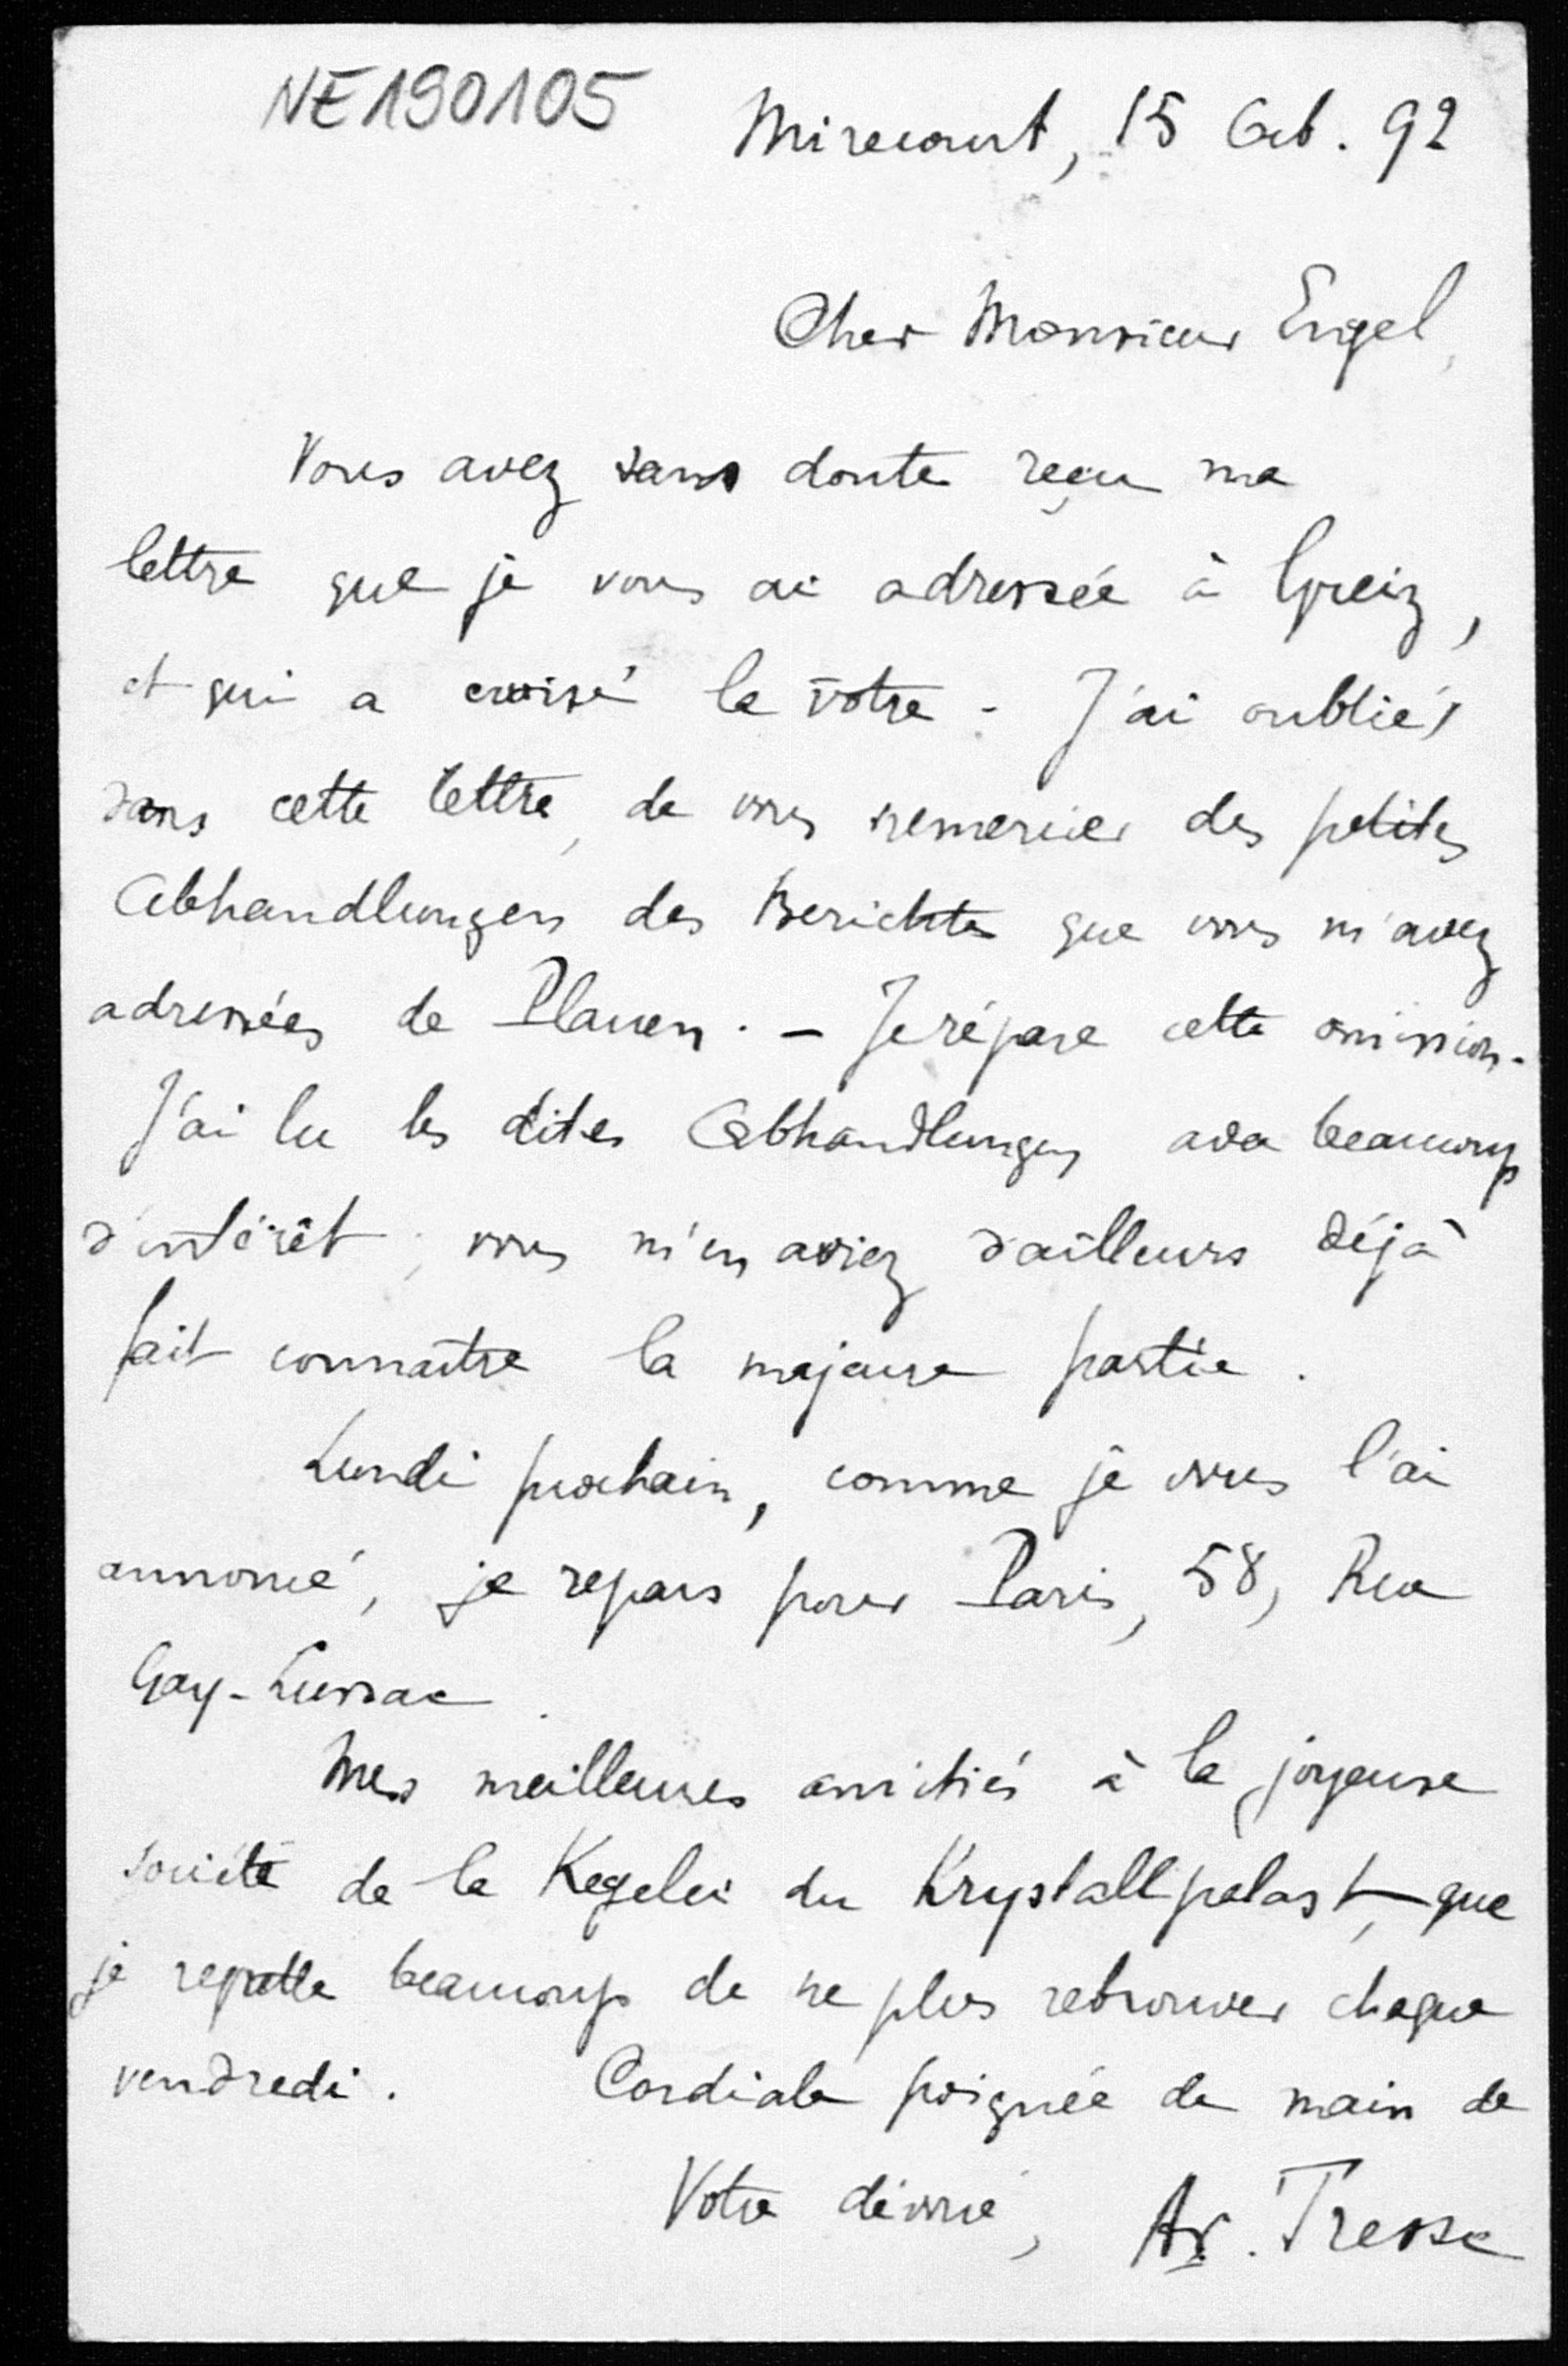 NE190105
Mirecourt, 15 Oct. 92
Cher Monsieur Engel,
Vous avez sans doute reçu ma
lettre que je vous ai adressée à Greiz,
et qui a croisé la vôtre - J'ai oublié,
dans cette lettre, de vous remercier des petites
Abhandlungen des Berichte que vous m'avez
adressées de Plauen. - Je répare cette omission.
J'ai lu les dites Abhandlungen avec beaucoup
d'intérêt ; vous m'en aviez d'ailleurs déjà
fait connaître la majeure partie.
Lundi prochain, comme je vous l'ai
annoncé, je repars pour Paris, 58, Rue
Gay-Lussac.
Mes meilleures amitiés à la joyeuse
société de la Kegelei du Krystallpalast, que
je regrette beaucoup de ne plus retrouver chaque
vendredi. Cordiale poignée de main de
Votre dévoué, Ar. Tresse